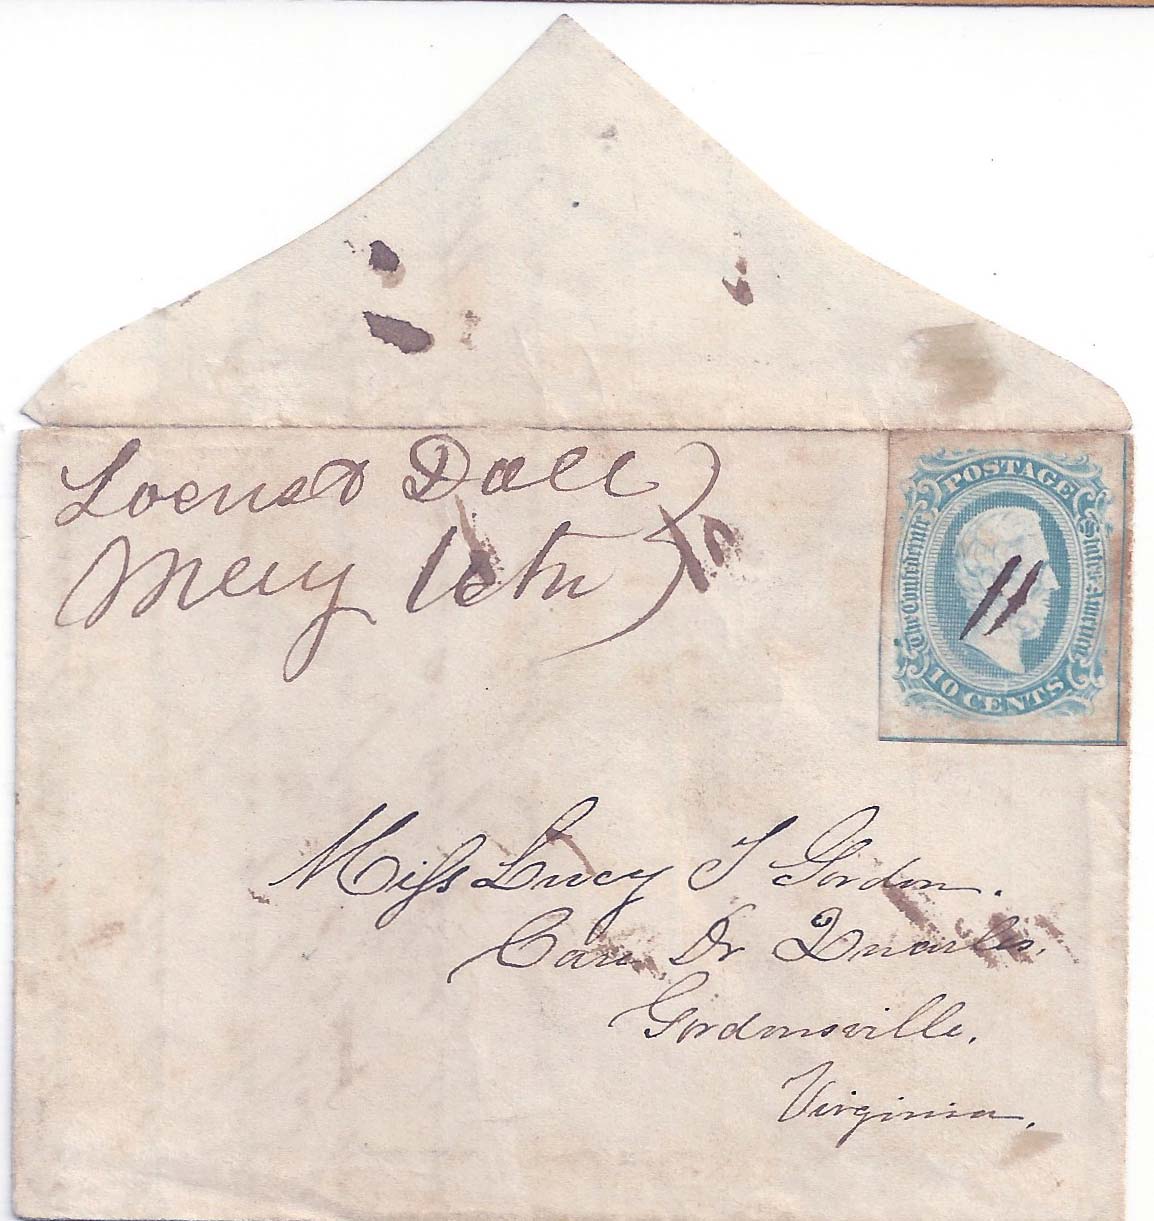 Locust Dale
May 16th
10
POSTAGE
The Confederate States of America
10 CENTS
Miss Lucy T Gordon.
Care Dr Quarles,
Gordonsville,
Virginia.